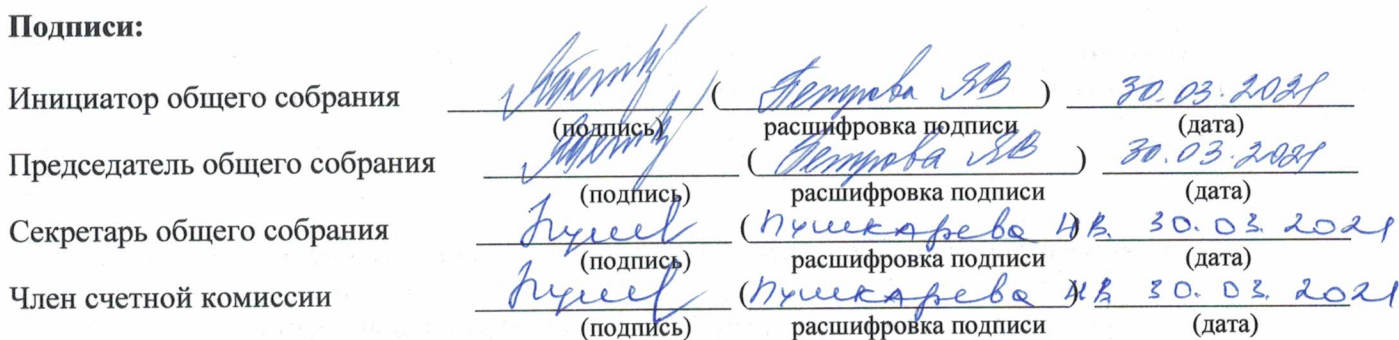 Подписи:
Инициатор общего собрания (Петрова ЯВ) 30.03.2021
(подпись) расшифровка подписи (дата)
Председатель общего собрания (Петрова ЯВ) 30.03.2021
(подпись) расшифровка подписи (дата)
Секретарь общего собрания (Пушкарева НВ.) 30.03.2021
(подпись) расшифровка подписи (дата)
Член счетной комиссии (Пушкарева НВ) 30.03.2021
(подпись) расшифровка подписи (дата)